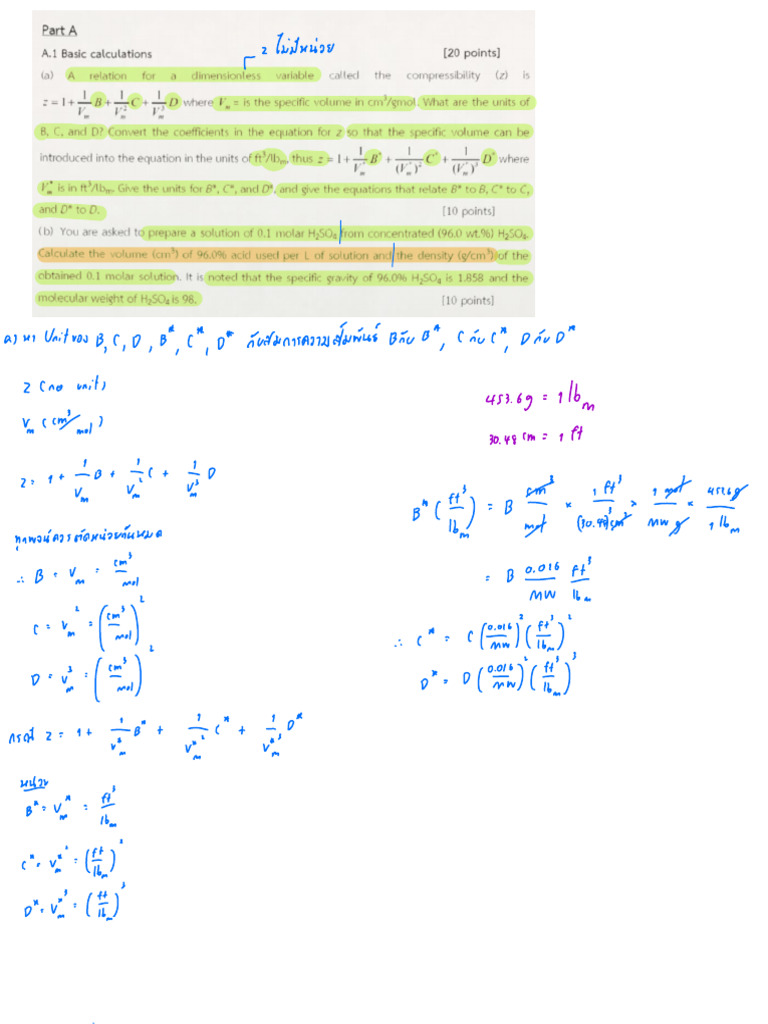 Part A
A.1 Basic calculations [20 points]
z ไม่มีหน่วย
(a) A relation for a dimensionless variable called the compressibility (z) is
z = 1 + 1/V_m B + 1/V_m^2 C + 1/V_m^3 D where V_m = is the specific volume in cm³/gmol. What are the units of
B, C, and D? Convert the coefficients in the equation for z so that the specific volume can be
introduced into the equation in the units of ft³/lb_m, thus z = 1 + 1/V_m^* B^* + 1/(V_m^*)^2 C^* + 1/(V_m^*)^3 D^* where
V_m^* is in ft³/lb_m. Give the units for B*, C*, and D*, and give the equations that relate B* to B, C* to C,
and D* to D. [10 points]
(b) You are asked to prepare a solution of 0.1 molar H₂SO₄ from concentrated (96.0 wt.%) H₂SO₄.
Calculate the volume (cm³) of 96.0% acid used per L of solution and the density (g/cm³) of the
obtained 0.1 molar solution. It is noted that the specific gravity of 96.0% H₂SO₄ is 1.858 and the
molecular weight of H₂SO₄ is 98. [10 points]
a) หา Unit ของ B, C, D, B*, C*, D* กับสมการความสัมพันธ์ B กับ B*, C กับ C*, D กับ D*
z (no unit)
V_m (cm³/mol)
z = 1 + 1/V_m B + 1/V_m^2 C + 1/V_m^3 D
ทุกพจน์ควรตัดหน่วยกันหมด
∴ B = V_m = cm³/mol
C = V_m^2 = (cm³/mol)^2
D = V_m^3 = (cm³/mol)^2
กรณี z = 1 + 1/V_m^* B* + 1/V_m^*2 C* + 1/V_m^*3 D*
หน่วย
B* = V_m^* = ft³/lb_m
C* = V_m^*2 = (ft/lb_m)^2
D* = V_m^*3 = (ft/lb_m)^3
453.6 g = 1 lb_m
30.48 cm = 1 ft
B* (ft³/lb_m) = B cm³/mol × 1 ft³/(30.48)³ cm² × 1 mol/MW g × 453.6 g/1 lb_m
= B 0.016/MW ft³/lb_m
∴ C* = C (0.016/MW)^2 (ft³/lb_m)^2
D* = D (0.016/MW)^2 (ft³/lb_m)^3